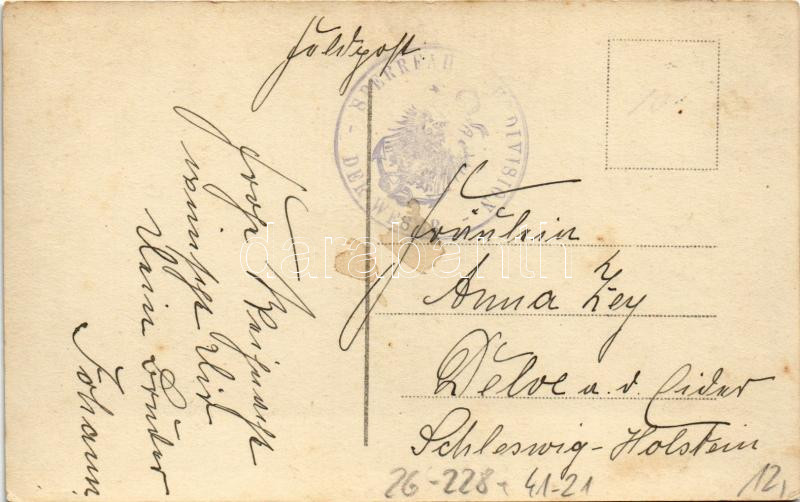 Feldpost.
SPERRFAH DIVISION
DER WESER
Frohe Weihnacht
wünscht Dir
Dein Bruder
Johann.
Fräulein
Anna Zey
Delve a. d. Eider
Schleswig-Holstein
26-228-41-21
12,
darabanth